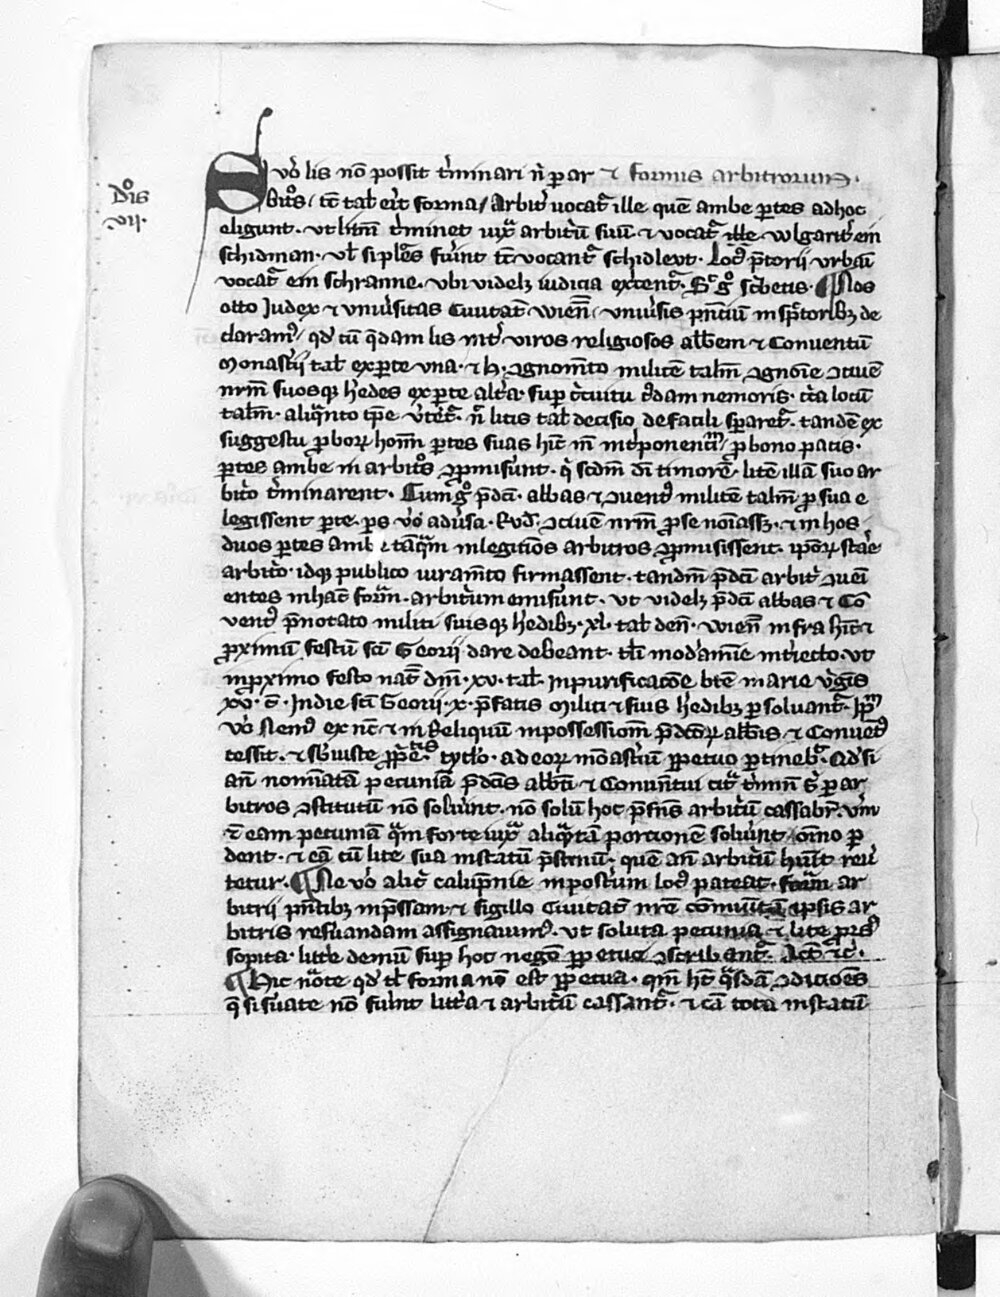 Dis
vii.
Si v̉o lis nō possit t̉minari ñ per ar ⁊ formis arbitrorum.
bit̉os, tc̄ tal' erit forma, Arbit̉ uocat᷑ ille quē ambe ꝑtes ad hoc
eligunt. vt litem t̉minet iuxͣ arbit̉ū suū. ⁊ vocat᷑ ille wlgarit̉ ein
schidman. vl' si plẽs fu̾int tc̄ vocant᷑ schidlevt. Loc᷑ p̄torii vrbanū
vocat᷑ ein schranne. vbi videlꝫ iudicia exc̾ent᷑. Sic g̊ sc̾betis. ¶ Nos
otto Iudex ⁊ vniu̾sitas Ciuitat̄ wienn̄. vniu̾sis p̄ntiū inspc̄toribꝫ de
claram᷒. qd' cū q̄dam lis int̾ viros religiosos abb̄em ⁊ Conuentū
Monast̾ii tal' ex ꝑte vna. ⁊ h. ꝯgnom̄to militē tal̄m ꝯgnoīe ꝯciuē
nr̄m suosqꝫ h̾edes ex ꝑte alt̾a. suꝑ c̾cuitu c̾dam nemoris. c̾ca locū
tal̄m. aliqͣnto tp̄e v̾teret᷑. nec litis tal' decisio de facili sꝑaret᷑. tandē ex
suggestu ꝓborꝝ hom̄ ꝑtes suas hic̄ in̄ int̾ponenciū, ꝓ bono pacis.
ꝑtes ambe in arbitr̊os ꝯꝓmis̾unt. q̄ scdm̄ dī timorē. litē illā suo ar
bit̾o t̾minarent. Cum g̊ p̄dc̄i. abbas ⁊ ꝯuent᷒ militē tal̄m ꝓ sua e
legissent ꝑte. ps v̊o adu̾sa. Rud̄. ꝯciuē nr̄m ꝓ se noīassꝫ. ⁊ in hos
duos ꝑtes ambe tāqͣm in legitīos arbitros ꝯꝓmisissent. ip̄orꝝ stare
arbit̾o. idqꝫ publico iuram̄to firmassent. tandm̄ p̄dc̄i arbit̾ ꝯuei
entes in hac̄ form̄. arbit̾um emis̾unt. vt videlꝫ p̄dc̄i abbas ⁊ Cō
vent᷒ p̄notato militi suisqꝫ h̾edibꝫ. xl. tal' den̄. wienn̄ infra hinc ⁊
ꝓximū festū sc̄i Georii dare debeant. tl'i mod̾amīe int̾iecto. vt
in ꝓximo festo nat̄ dn̄i. xv. tal'. In purificacōe bt̄e marie v̾gīs
xv. ⁊. In die sc̄i Georii. x. p̄fatis militi ⁊ suis h̾edibꝫ ꝑsoluant᷑. Ip̄m
v̊o nem᷒ ex nc̄ ⁊ in Reliquū in possessionem p̄dc̄orꝝ abb̄is ⁊ Conuent᷒
cessit. ⁊ s̾ iuste ꝓprietatis tyt̾lo. ad eorꝝ monast̾iū ꝑpetuo ꝑtineb᷑. Qd' si
aut̄ nominatā pecuniā p̄dc̄is abb̄i ⁊ Conuentui cit̾ t̾min̄ s̾ ꝑ ar
bitros ꝯstitutū nō solu̾int. nō solū hoc p̄sēns arbit̾ū cassabr̄. vm̄
⁊ eam pecuniā qͣm forte iuxͣ aliqͣtā porcionē solu̾int omīno ꝑ
dent. ⁊ cā cū lite sua in statū p̄stinū. quē añ arbit̾ū hūit reu̾
tetur. ¶ Ne v̊o alic᷒ calūpnie in post̾um loc᷒ pateat. formā ar
bitrii p̄ntibꝫ inp̄ssam. ⁊ sigillo Ciuitat̄ nr̄e cōmunitā ip̄sis ar
bitris res̾uandam assignauim᷒. vt soluta pecunia ⁊ lite prius
sopita. litt̾e demū suꝑ hoc negoc̄ ꝑpetue ꝯscribent᷑. Act̄ ⁊c̄.
¶ Hic nōate qd' tl' forma nō est ꝑpetua. qm̄ h̄t qͣsdā ꝯdicioēs
q̄ si s̾uate nō fu̾int litt̾a ⁊ arbit̾ū cassant᷑. ⁊ cā tota in statū